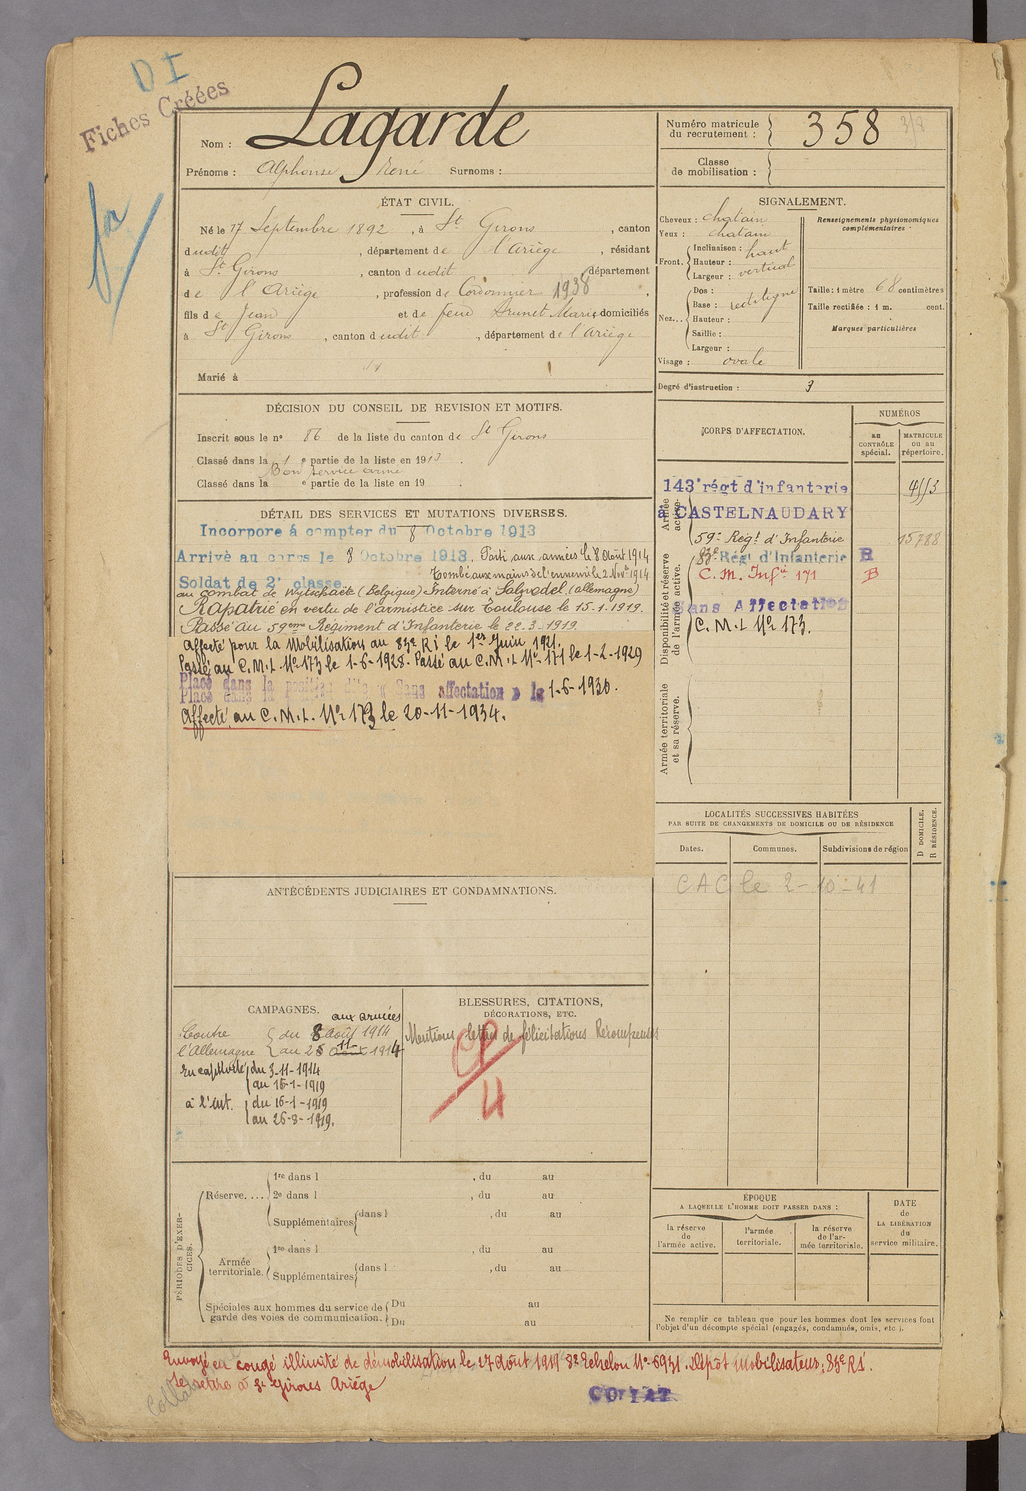 D I
Fiches Créées
Nom : Lagarde
Prénoms : Alphonse René Surnoms :
Numéro matricule du recrutement : 358
Classe de mobilisation :
ÉTAT CIVIL.
Né le 17 Septembre 1892, à St Girons, canton
dudit, département de l'Ariège, résidant
à St Girons, canton dudit département
de l'Ariège, profession de Cordonnier 1938,
fils de Jean et de feue Brunet Marie domiciliés
à St Girons, canton dudit, département de l'Ariège
Marié à
SIGNALEMENT.
Cheveux : chatain
Yeux : chatain
Front. Inclinaison : haut
Hauteur :
Largeur : vertical
Nez... Dos :
Base : rectiligne
Hauteur :
Saillie :
Largeur :
Visage : ovale
Renseignements physionomiques complémentaires :
Taille : 1 mètre 68 centimètres
Taille rectifiée : 1 m. cent.
Marques particulières
Degré d'instruction : 3
DÉCISION DU CONSEIL DE REVISION ET MOTIFS.
Inscrit sous le n° 86 de la liste du canton de St Girons
Classé dans la 1 e partie de la liste en 1913.
Bon service armé
Classé dans la e partie de la liste en 19 .
DÉTAIL DES SERVICES ET MUTATIONS DIVERSES.
Incorporé à compter du 8 Octobre 1913
Arrivé au corps le 8 Octobre 1913. Parti aux armées le 8 Août 1914
Soldat de 2e classe. Tombé aux mains de l'ennemi le 2 Nov. 1914
au combat de Wytschaete (Belgique) Interné à Salzwedel (allemagne)
Rapatrié en vertu de l'armistice sur Toulouse le 15.1.1919.
Passé au 59eme Régiment d'Infanterie le 22.3.1919
Affecté pour la Mobilisation au 83e RI le 1er Juin 1921.
Passé au C.M.I. No 173 le 1-6-1928. Passé au C.M.I No 171 le 1-2-1929
Placé dans la position dite « Sans affectation » le 1-6-1930.
Affecté au C.M.I. No 173 le 20-11-1934.
CORPS D'AFFECTATION.
NUMÉROS
au CONTRÔLE spécial.
MATRICULE ou au répertoire.
Armée active.
143e régt d'infanterie
à CASTELNAUDARY
Disponibilité et réserve de l'armée active.
59e Regt d'Infanterie 15788
83e Régt d'Infanterie R
C. M. Infie 171 B
Sans Affectation
C.M.I No 173.
Armée territoriale et sa réserve.
LOCALITÉS SUCCESSIVES HABITÉES
PAR SUITE DE CHANGEMENTS DE DOMICILE OU DE RÉSIDENCE
Dates. Communes. Subdivisions de région
D DOMICILE. R RÉSIDENCE.
CAC le 2-10-41
ANTÉCÉDENTS JUDICIAIRES ET CONDAMNATIONS.
CAMPAGNES.
aux armées
Contre du 8 août 1914
l'Allemagne au 2 11 1914
En captivité du 3-11-1914
au 15-1-1919
à l'int. du 16-1-1919
au 26-8-1919.
BLESSURES, CITATIONS,
DÉCORATIONS, ETC.
Mentions lettres de félicitations Récompenses
PÉRIODES D'EXERCICES.
Réserve.... 1re dans l , du au
2e dans l , du au
Supplémentaires dans l , du au
Armée territoriale. 1re dans l , du au
Supplémentaires dans l , du au
Spéciales aux hommes du service de garde des voies de communication. Du au
Du au
ÉPOQUE
A LAQUELLE L'HOMME DOIT PASSER DANS :
la réserve de l'armée active.
l'armée territoriale.
la réserve de l'armée territoriale.
DATE de LA LIBÉRATION du service militaire.
Ne remplir ce tableau que pour les hommes dont les services font l'objet d'un décompte spécial (engagés, condamnés, omis, etc.).
Envoyé en congé illimité de démobilisation le 27 Août 1919 8e Echelon No 6931. Dépôt Mobilisateur : 83e RI.
Se retire à St Girons Ariège